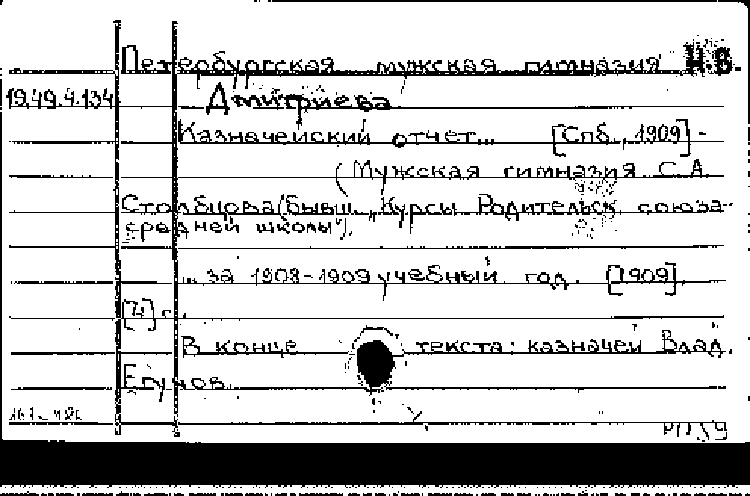 Петербургская мужская гимназия Н.В.
19.49.4.134 Дмитриева
Казначейский отчет... [Спб., 1909] -
(Мужская гимназия С.А.
Столбцова (бывш. „Курсы Родительск. союза
средней школы“).
... за 1908-1909 учебный год. [1909].
[4] с.
В конце текста: казначей Влад.
Егунов.